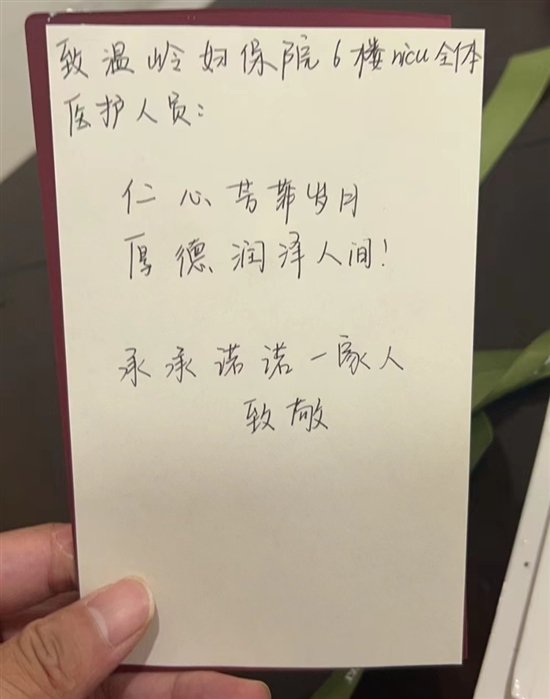 致温岭妇保院6楼nicu全体
医护人员:
仁心芳菲岁月
厚德润泽人间!
承承诺诺一家人
致敬